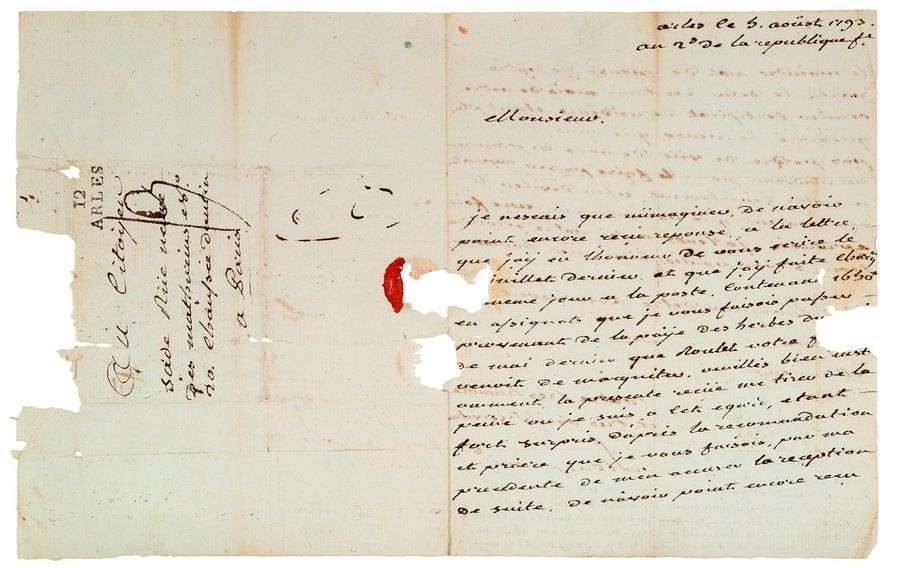 12
ARLES
Au Citoyen
Sade Rue neuve
des mathurins
chaussée dantin
a Paris
arles le 5. aoüst 1793.
au 2d. de la republique fse
Monsieur.
je nescais que m'imaginer, de n'avoir
point encore reçû reponse, a la lettre
que j'ay eü lhonneur de vous ecrire le
juillet dernier, et que j'ay faite charger
meme jour a la poste. Contenant 1650#
en assignats que je vous faisois passer
provenant de la paye des herbes du
de mai dernier que Roulet votre
venoit de m'acquiter, veuillés bien inst
amment, la presente recüe me tirer de la
peine ou je suis a cet egard, etant
fort surpris, daprés la recomandation
et priere que je vous faisois, par ma
precedente de m'en accuser la reception
de suite, de n'avoir point encoré reçu